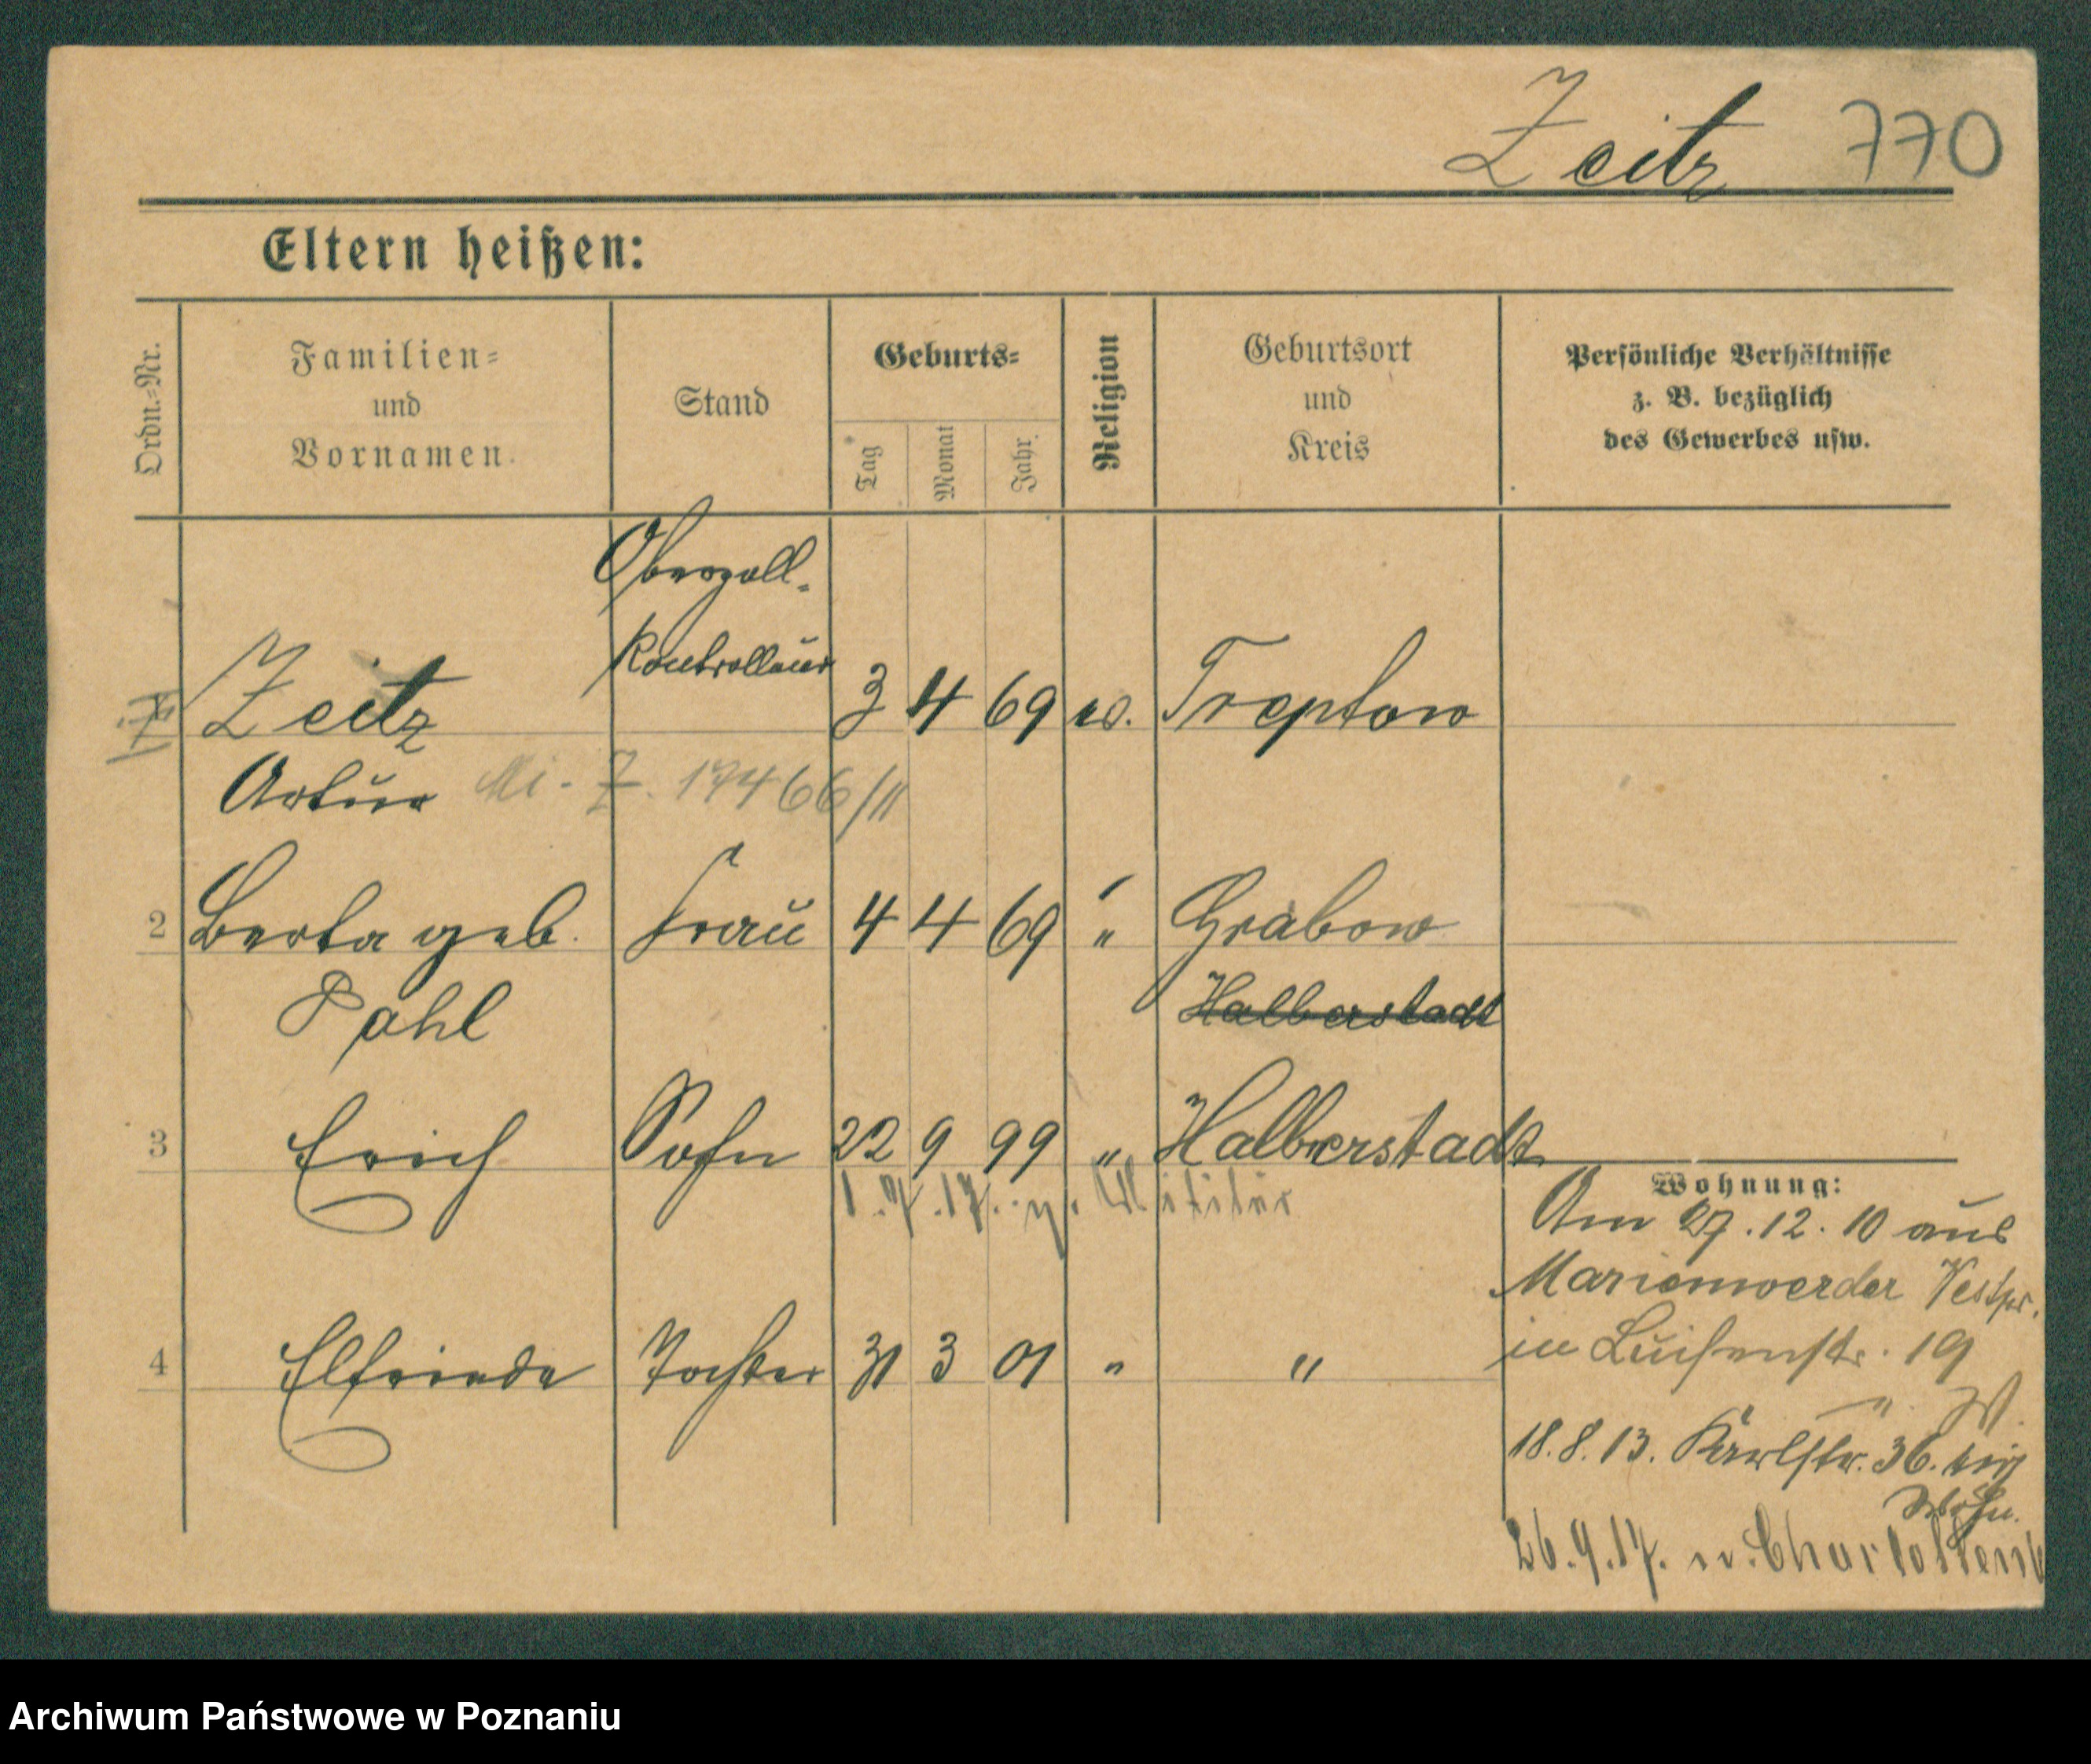 Zeitz 770
Eltern heißen:
Ordn.=Nr.
Familien=
und
Vornamen.
Stand
Geburts=
Tag
Monat
Jahr.
Religion
Geburtsort
und
Kreis
Persönliche Verhältnisse
z. B. bezüglich
des Gewerbes usw.
Oberzoll-
Kontrolleur
Zeitz 3 4 69 ev. Treptow
Artur 17466/11
2 Berta geb. Frau 4 4 69 " Grabow
Pahl Halberstadt
3 Erich Sohn 22 9 99 " Halberstadt
1.7.17. z. Militär
Wohnung:
Am 27.12.10 aus
Marienwerder Westpr.
in Luisenstr. 19
4 Elfriede Tochter 31 3 01 " "
18.8.13. Karlstr. 36.
26.9.17. n. Charlottenb
Archiwum Państwowe w Poznaniu